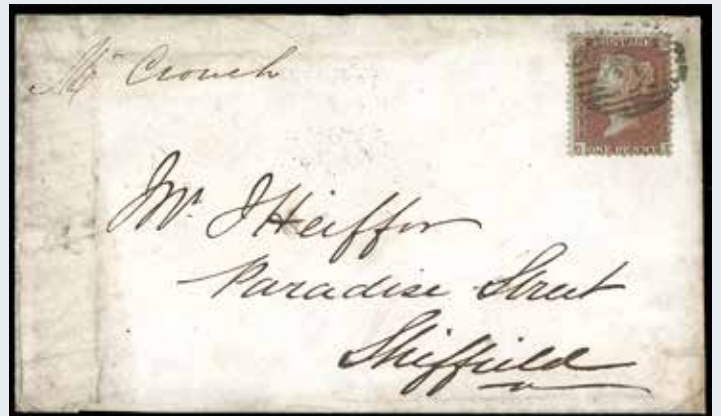 Mr Crouch
POSTAGE
ONE PENNY
Mr. J Heiffor
Paradise Street
Sheffield